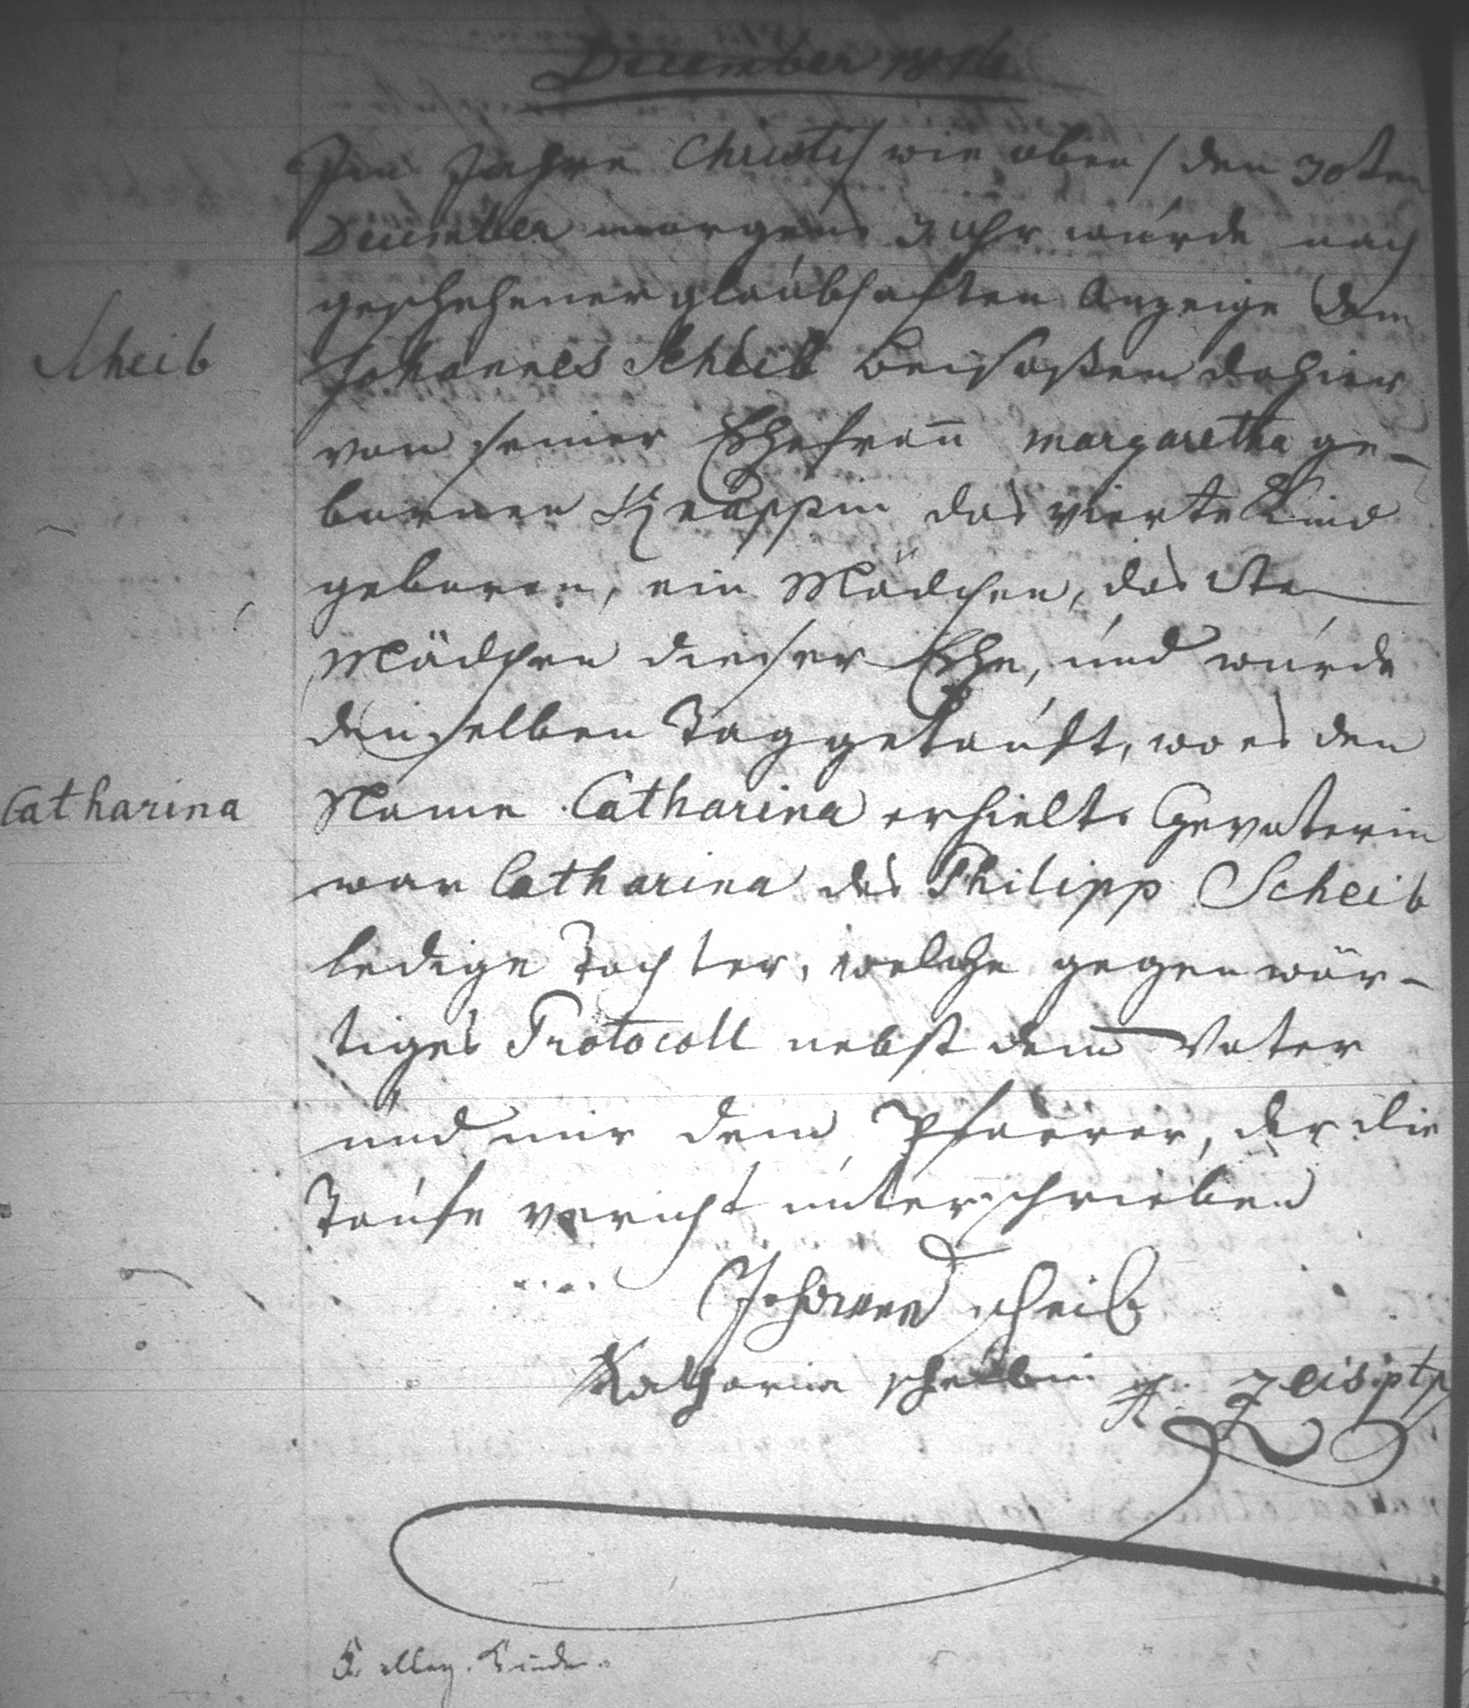 December 1816
Im Jahre Christi / wie oben / den 30ten
December morgens 3 Uhr wurde nach
geschehener glaubhaften Anzeige dem
Scheib
Johannes Scheib Beisaßen dahier
von seiner Ehefrau Margaretha ge-
bornen Knappin das vierte Kind
geboren, ein Mädchen, das 2te
Mädchen dieser Ehe, und wurde
denselben Tag getauft, wo es den
Catharina
Name Catharina erhielte Gevaterin
war Catharina des Philipp Scheib
ledige Tochter, welche gegenwär-
tiges Protocoll nebst dem Vater
und mir dem Pfarrer, der die
Taufe vericht unterschrieben
Johannes Scheib
Katharina Scheibin Zeis